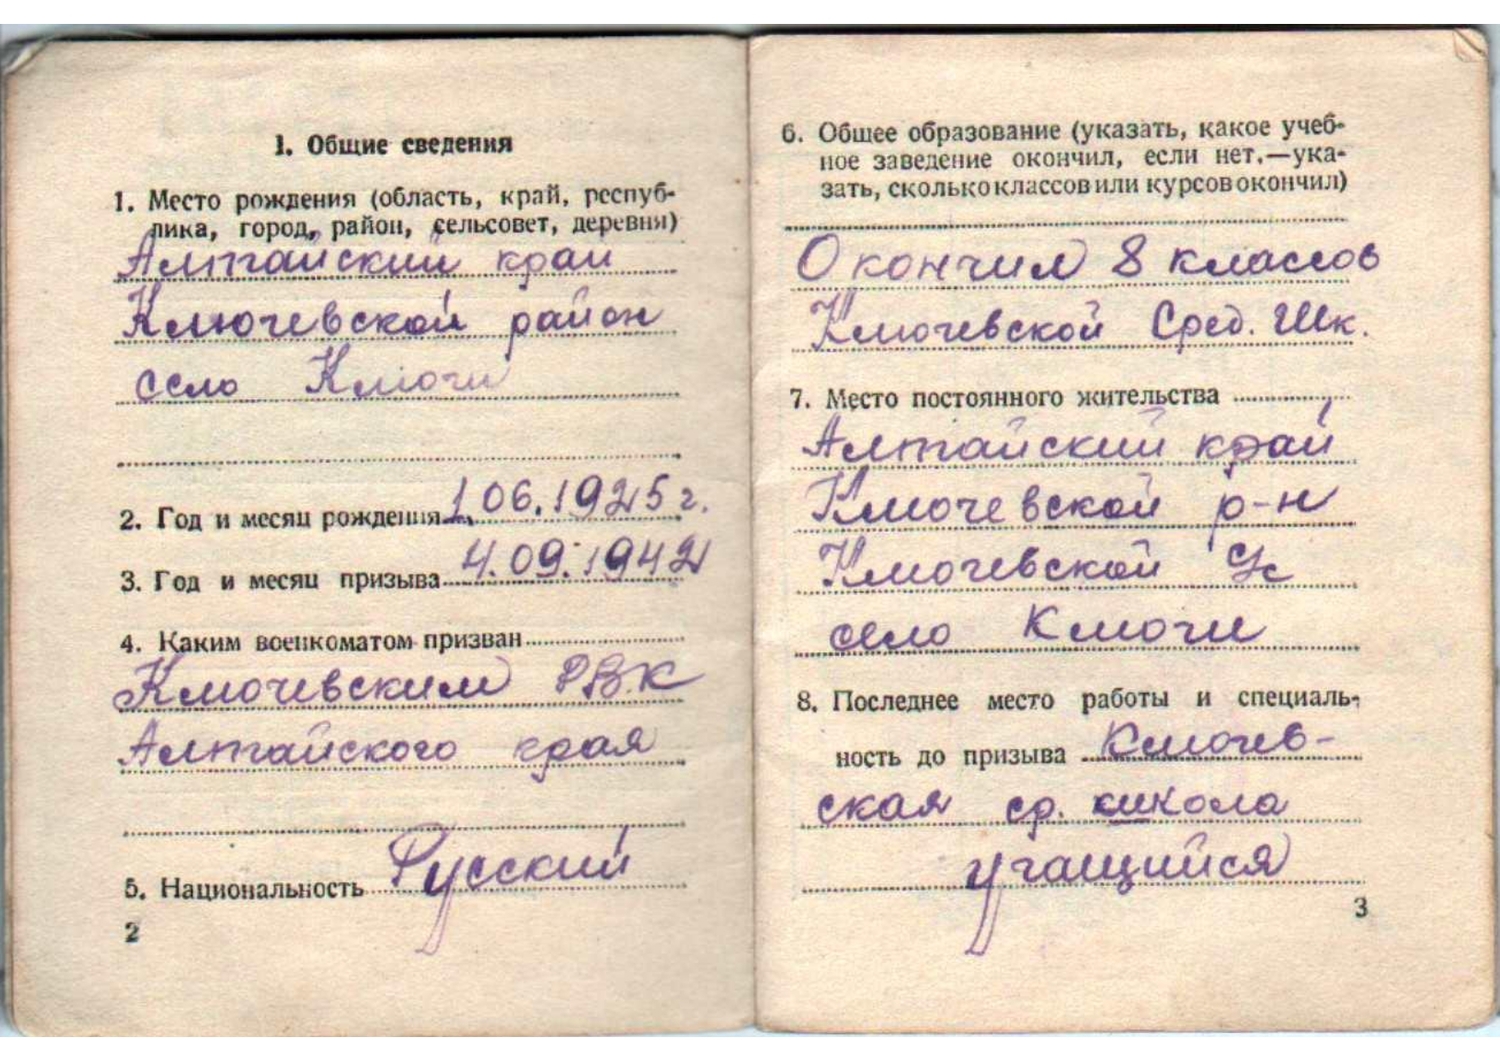 1. Общие сведения
1. Место рождения (область, край, респуб-
лика, город, район, сельсовет, деревня)
Алтайский край
Ключевской район
село Ключи
2. Год и месяц рождения 1.06.1925 г.
3. Год и месяц призыва 4.09.1942
4. Каким военкоматом призван
Ключевским РВК
Алтайского края
5. Национальность Русский
2
6. Общее образование (указать, какое учеб-
ное заведение окончил, если нет,—ука-
зать, сколько классов или курсов окончил)
Окончил 8 классов
Ключевской Сред. Шк.
7. Место постоянного жительства
Алтайский край
Ключевской р-н
Ключевской с/с
село Ключи
8. Последнее место работы и специаль-
ность до призыва Ключев-
ская ср. школа
учащийся
3